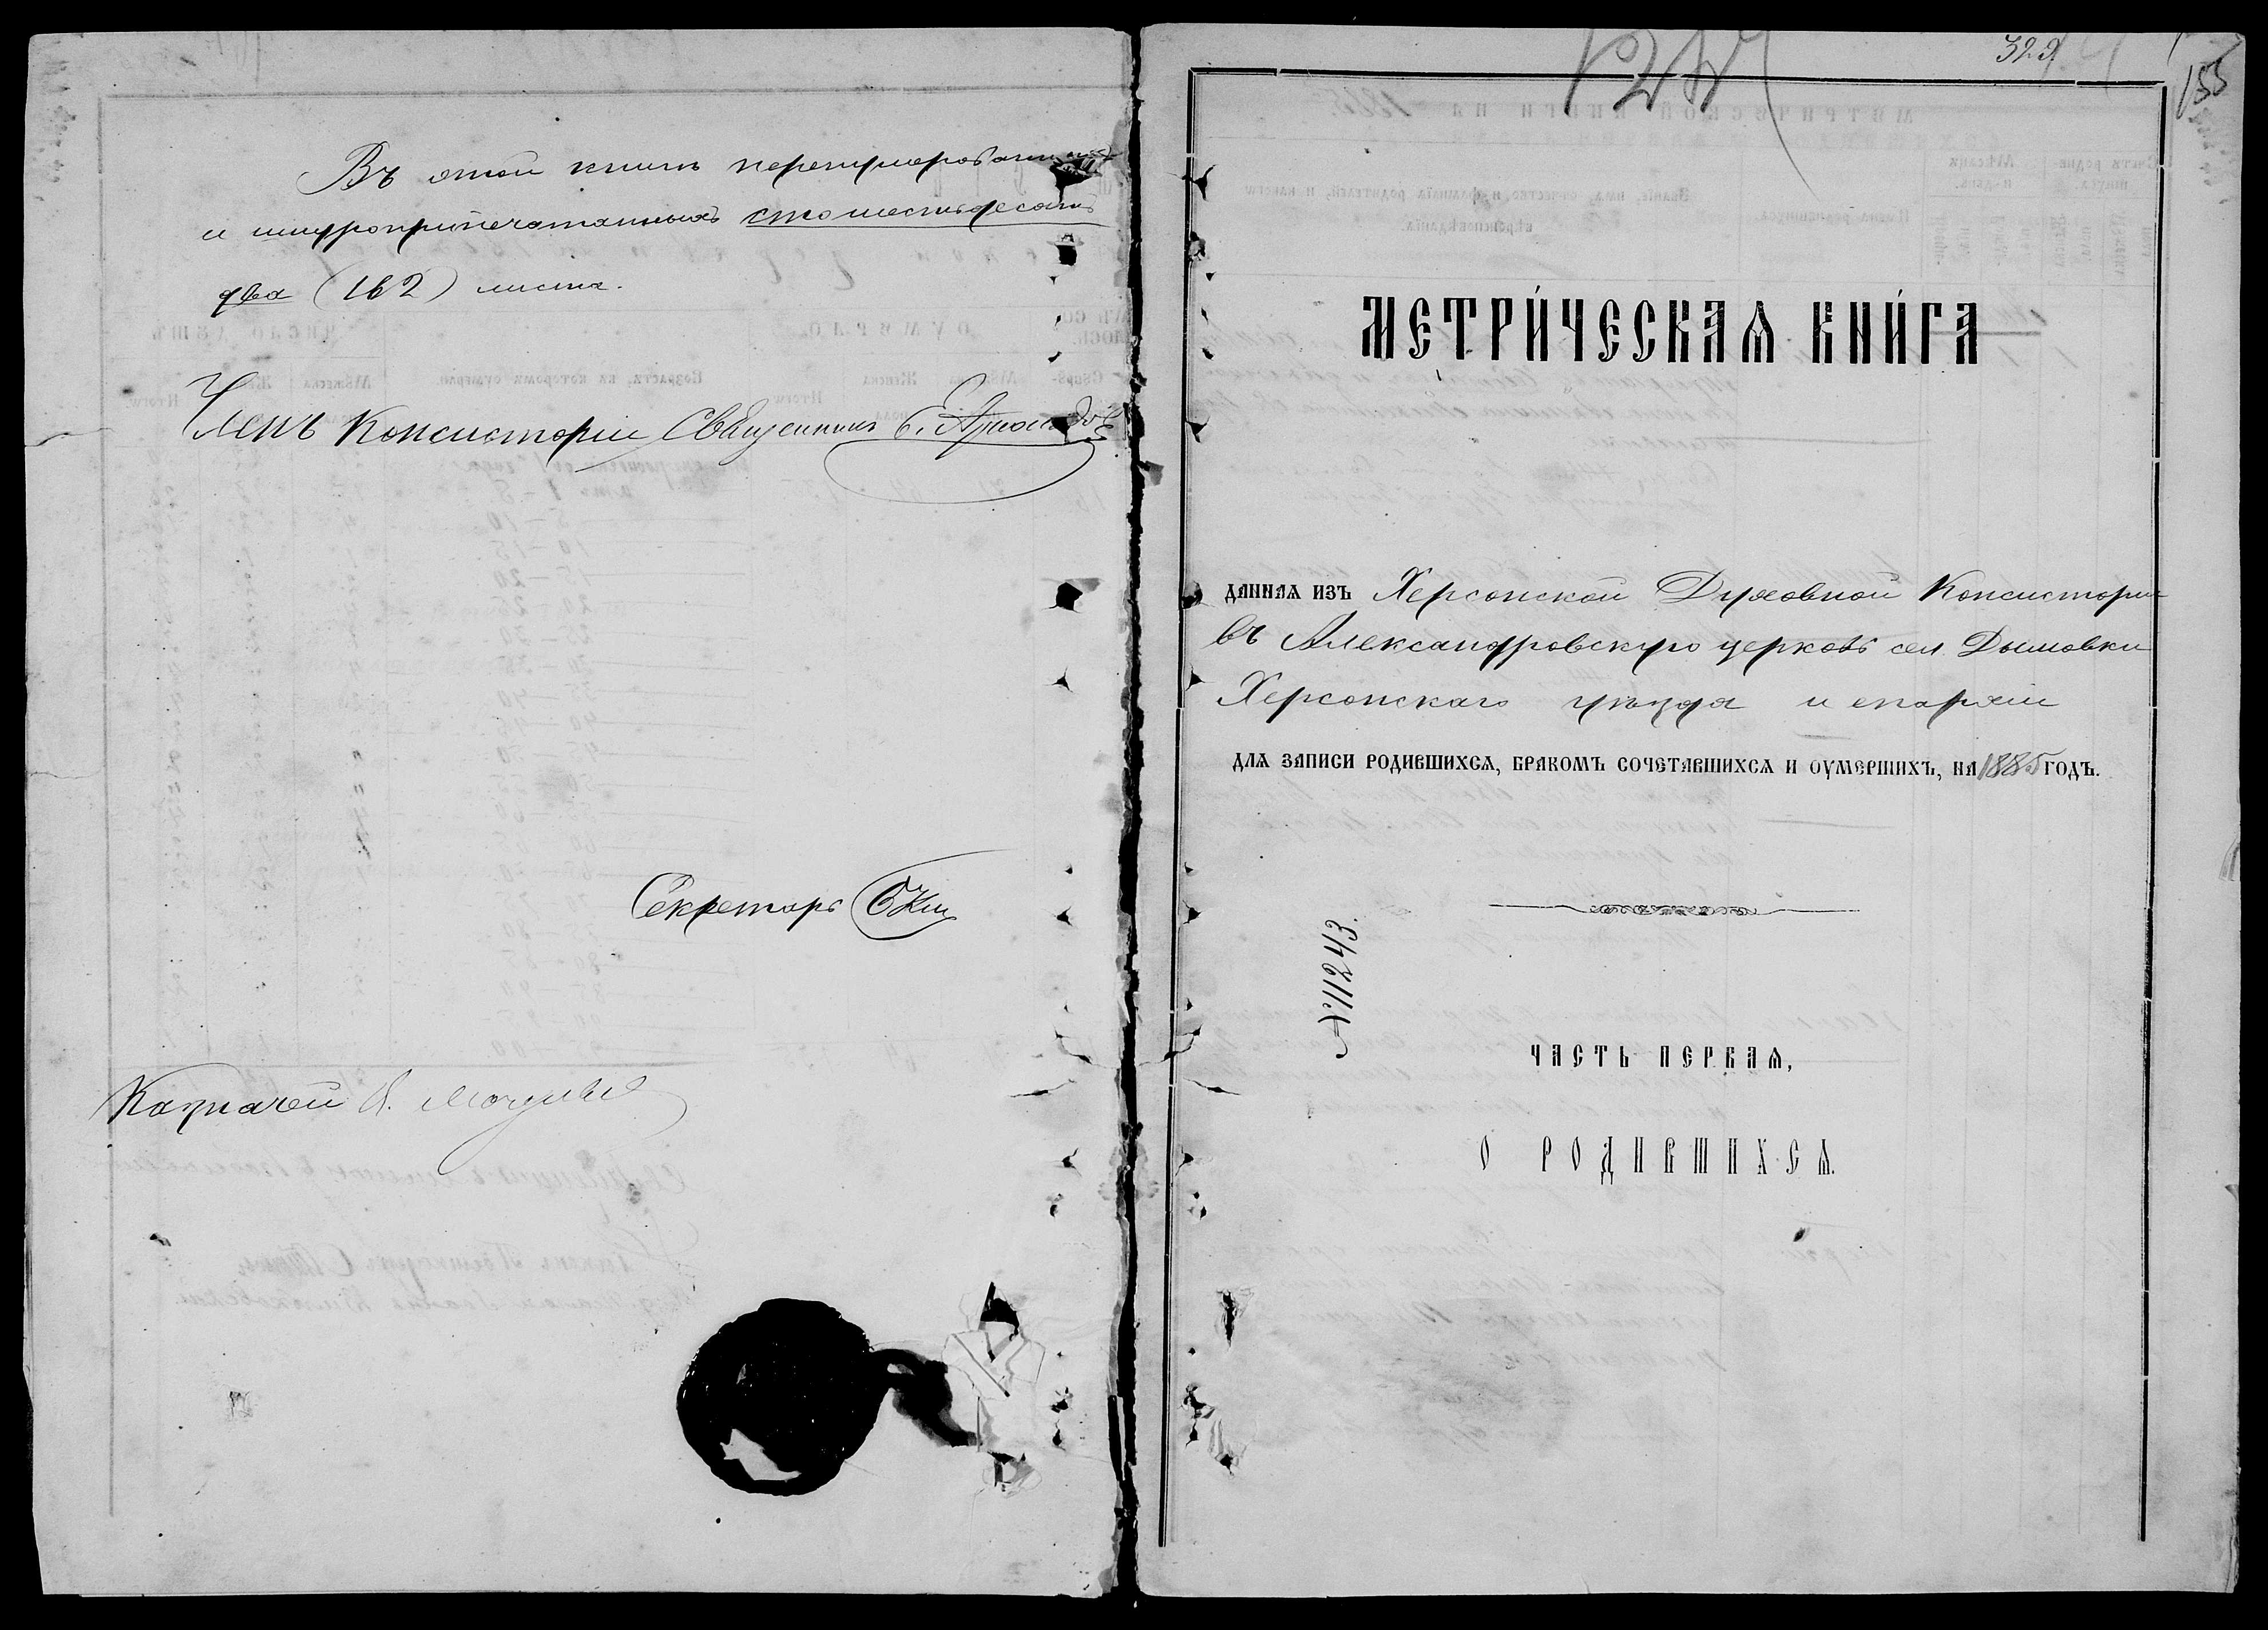 Въ этой книгѣ перенумерованныхъ
и шнуроприпечатанныхъ стошестьдесятъ
два (162) листа.
Членъ Консисторіи Священникъ
Секретарь
Казначей
329
155
МЕТРИ́ЧЕСКАѦ КНИ́ГА
ДАННАѦ ИЗЪ Херсонской Духовной Консисторіи
въ Александровскую церковь сел Дымовки
Херсонскаго уѣзда и епархіи
ДЛѦ ЗАПИСИ РОДИВШИХСѦ, БРАКОМЪ СОЧЕТАВШИХСѦ И ОУМЕРШИХЪ, НА 1885 ГОДЪ.
№11243.
ЧАСТЬ ПЕРВАѦ,
О РОДИВШИХСѦ.